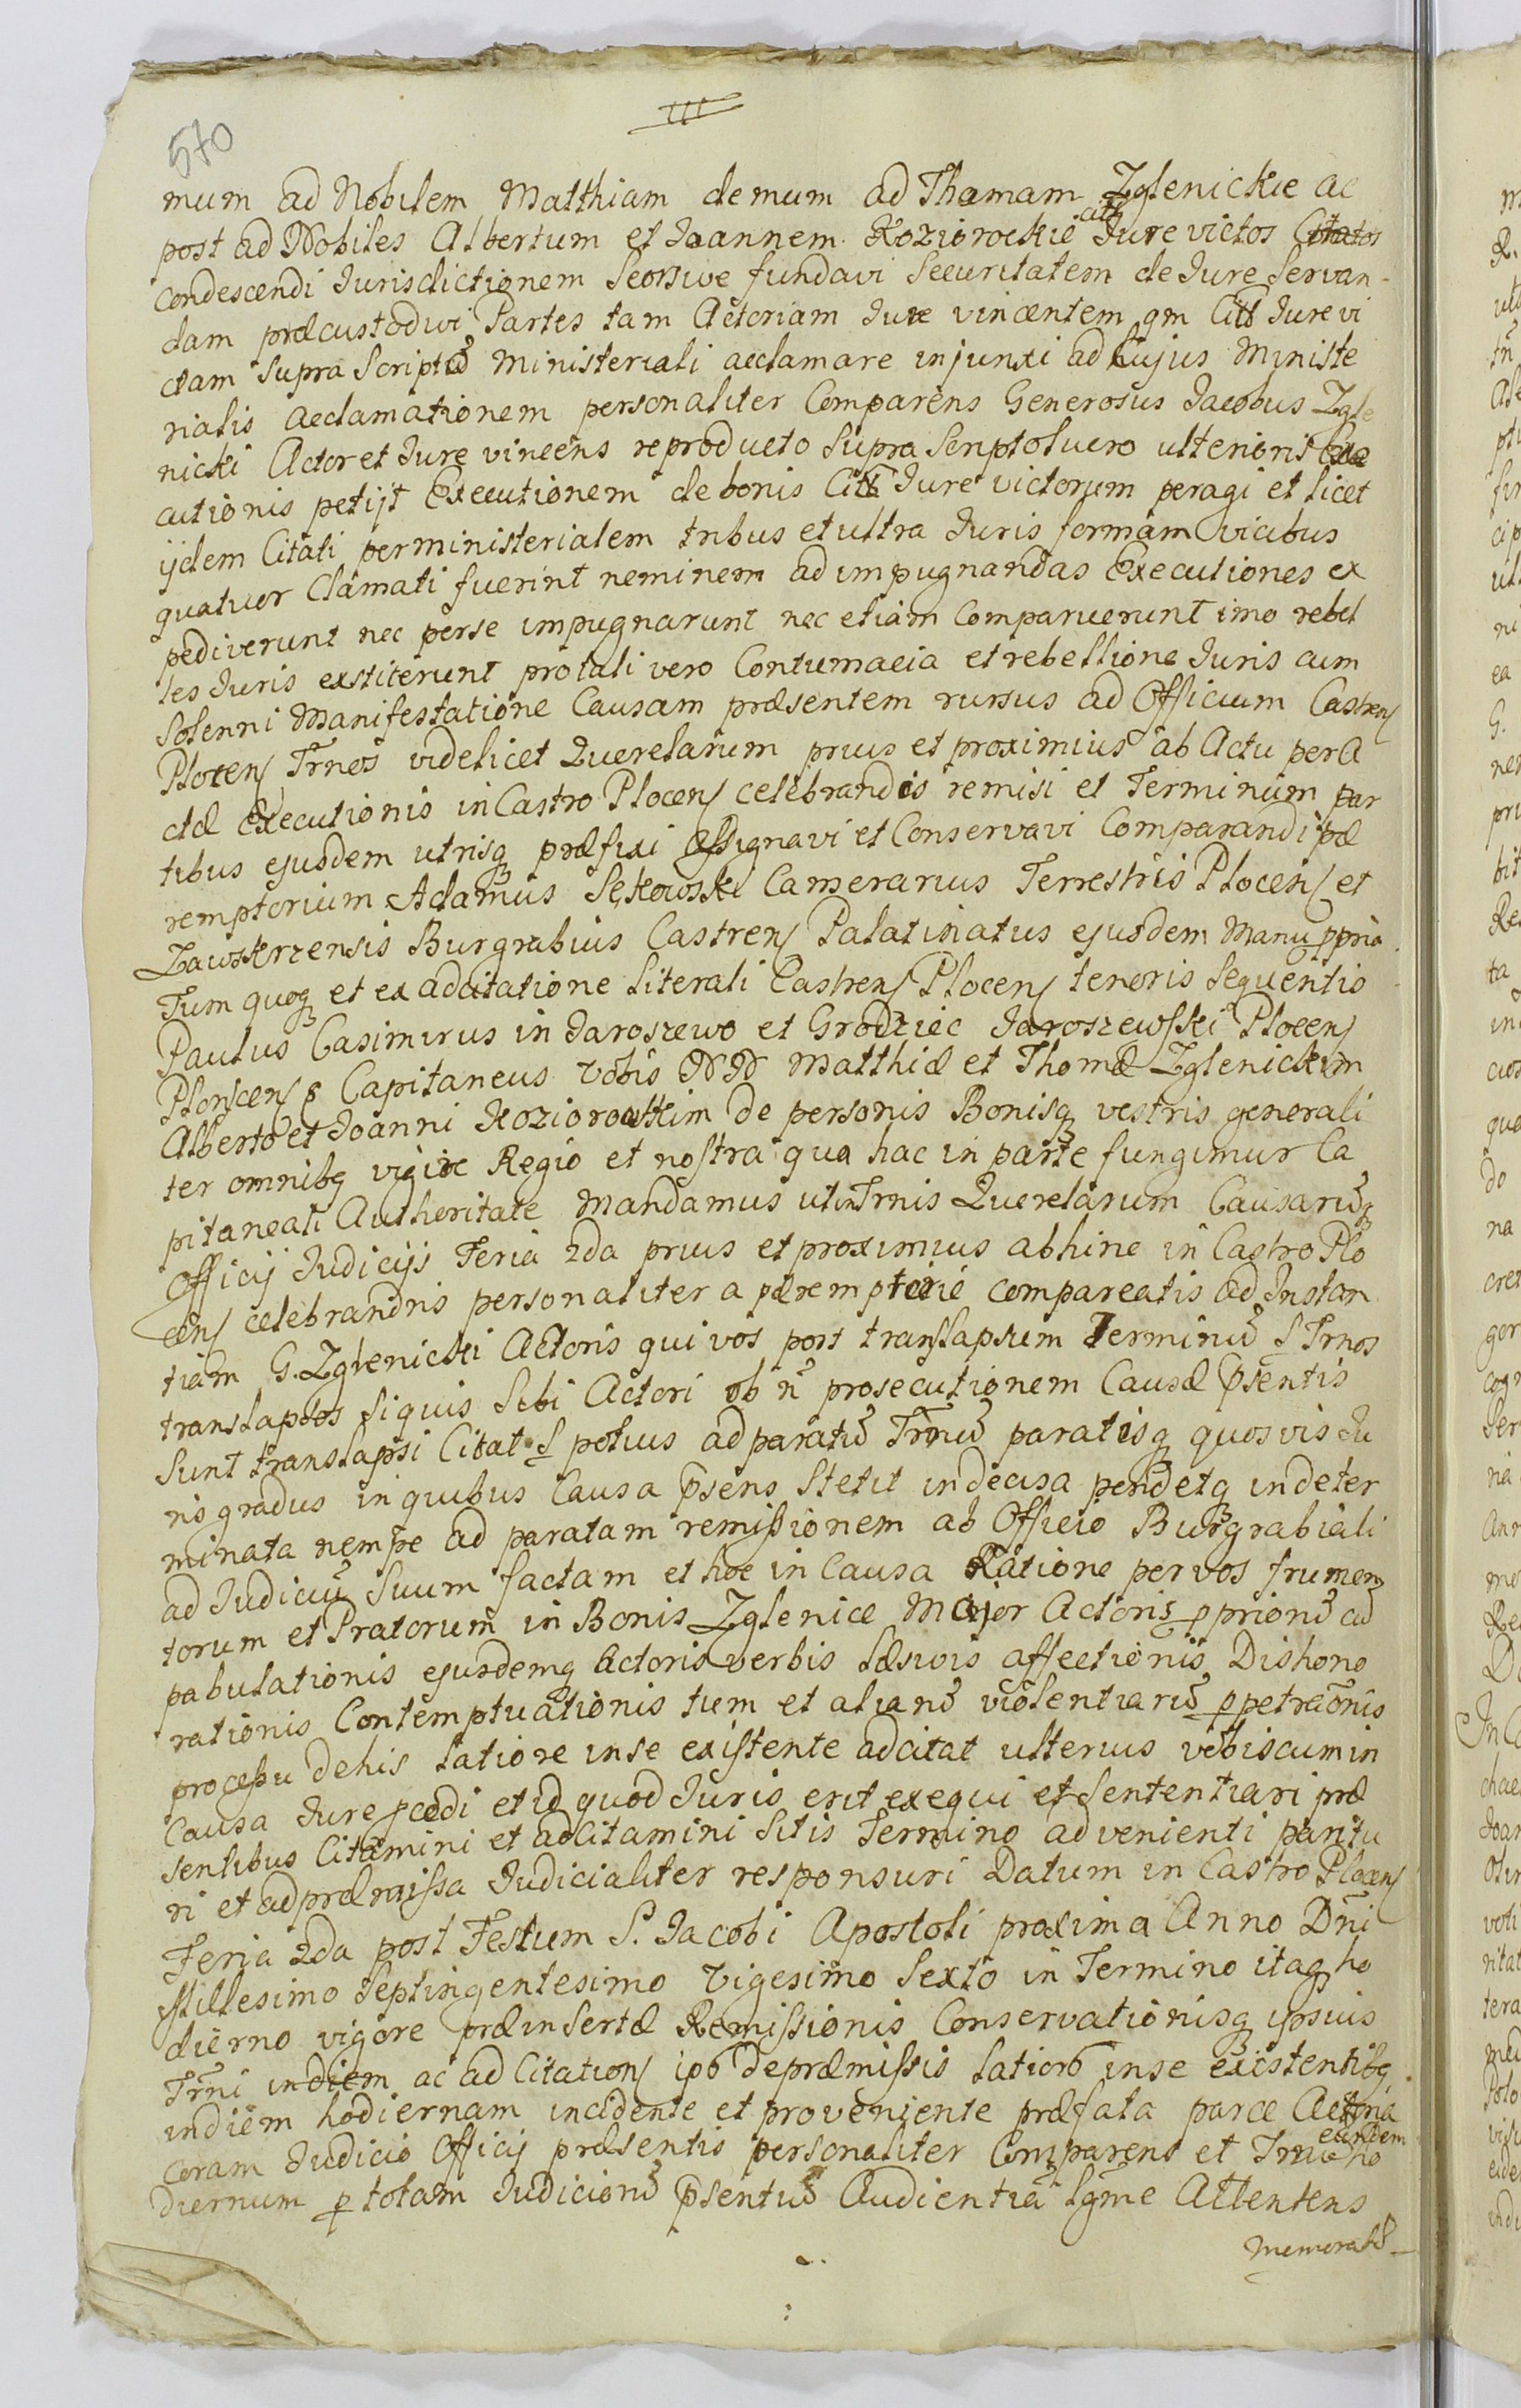 III
570
mum ad Nobilem Matthiam demum ad Thomam Zglenickie ac
post ad Nobiles Albertum et Joannem Koziorockie citt Jure victos Citatos
condescendi Jurisdictionem Seorsive fundavi Securitatem de Jure Servan-
dam præcustodivi Partes tam Actoriam Jure vincentem qm Citt Jure vi
ctam Supra Scripto Ministeriali acclamare injunxi ad hujus Ministe
rialis acclamationem personaliter Comparens Generosus Jacobus Zgle
nicki Actor et Jure vincens reproducto Supra Scripto lucro ulterioris Exe
cutionis petijt Executionem de bonis Citt Jure victorum peragi et licet
ijdem Citati per ministerialem tribus et ultra Juris formam vicibus
quatuor Clamati fuerint neminem ad impugnandas Executiones ex
pediverunt nec per se impugnarunt nec etiam comparuerunt imo rebel
les Juris exstiterunt pro tali vero Contumacia et rebellione Juris cum
Solenni Manifestatione Causam præsentem rursus ad Officium Castren
Plocen Trnos videlicet Querelarum prius et proximius ab Actu pera
ctæ Executionis in Castro Plocen celebrandis remisi et Terminum par
tibus ejusdem utrisq præfixi Assignavi et Conservavi Comparandi pæ
remptorium Adamus Sękowski Camerarius Terrestris Plocen et
Zawskrzensis Burgrabius Castren Palatinatus ejusdem Manu ppria
Tum quoq et ex adcitatione literali Castren Plocen tenoris Sequentis
Paulus Casimirus in Jaroszewo et Grodziec Jaroszewski Plocen
Plonscen Capitaneus Vobis NN Matthiæ et Thomæ Zglenickim
Alberto et Joanni Koziorowskim de personis Bonisq vestris generali
ter omnibq vigire Regio et nostra qua hac in parte fungimur Ca
pitaneali Authoritate Mandamus ut in Trnis Querelarum Causarūq
Officij Judicijs Feria 2da prius et proximius abhinc in Castro Plo
cen celebrandris personaliter a pæremptorie compareatis ad Instan
tiam G. Zglenicki Actoris qui vos post translapsum Terminū S Trnos
translapsos si quis Sibi Actori ob n prosecutionem Causæ psentis
Sunt translapsi Citat S potius ad paratū Trnū paratisq quosvis Ju
ris gradus in quibus Causa psens Stetit indecisa pendetq indeter
minata nempe ad paratam remissionem ab Officio Burgrabiali
ad Judiciū Suum factam et hoc in Causa Ratione per vos frumen
torum et Pratorum in Bonis Zglenice Major Actoris pprionū ad
pabulationis ejusdemq Actoris verbis læsivis affectionis Dishono
rationis Contemptuationis tum et alianū violentiarū ppetraonis
processu de his latiore in se existente adcitat ulterius vobiscum in
Causa Jure pcedi et id quod Juris erit exequi et Sententiari præ
sentibus Citamini et adcitamini Sitis Termino advenienti paritu
ri et ad præmissa Judicialiter responsuri Datum in Castro Plocen
Feria 2da post Festum S. Jacobi Apostoli proxima Anno Dni
Millesimo Septingentesimo Vigesimo Sexto in Termino itaq ho
dierno vigore præinsertæ Remissionis Conservationisq ipsius
Trni in diem ac ad Citation ipō de præmissis latiorō in se existentibq
in diem hodiernam incidente et proveniente præfata parce Actoria
coram Judicio Officij præsentis personaliter Comparens et Trnū eundem ho
diernum p totam Judicionū psentiū Audientia lgme Attentens
memoratū